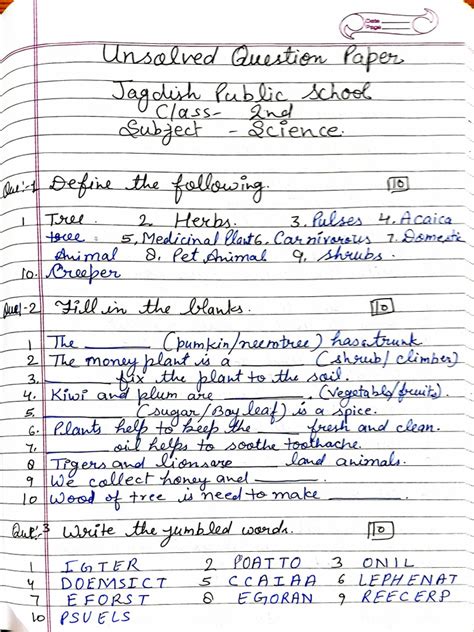 Date
Page
Unsolved Question Paper
Jagdish Public School
Class- 2nd
Subject - Science.
Que:-1 Define the following. 10
1 Tree. 2. Herbs. 3. Pulses 4. Acaica
tree. 5, Medicinal Plant 6. Carnivorous 7. Domestic
Animal 8. Pet Animal 9, shrubs.
10. Creeper
Que:-2 Fill in the blanks. 10
1 The ______ (pumkin/neemtree) has a trunk
2 The money plant is a ______ (shrub/climber)
3. ______ fix the plant to the soil.
4. Kiwi and plum are ______. (Vegetable/fruits).
5 ______ (sugar/Bay leaf) is a spice.
6. Plants help to keep the ___ fresh and clean.
7. ______ oil helps to soothe toothache.
8 Tigers and lions are ______ land animals.
9 We collect honey and ______.
10 Wood of tree is need to make ______.
Que:-3 Write the jumbled words. 10
1 IGTER 2 POATTO 3 ONIL
4 DOEMSICT 5 CCAIAA 6 LEPHENAT
7 EFORST 8 EGORAN 9 REECERP
10 PSUELS